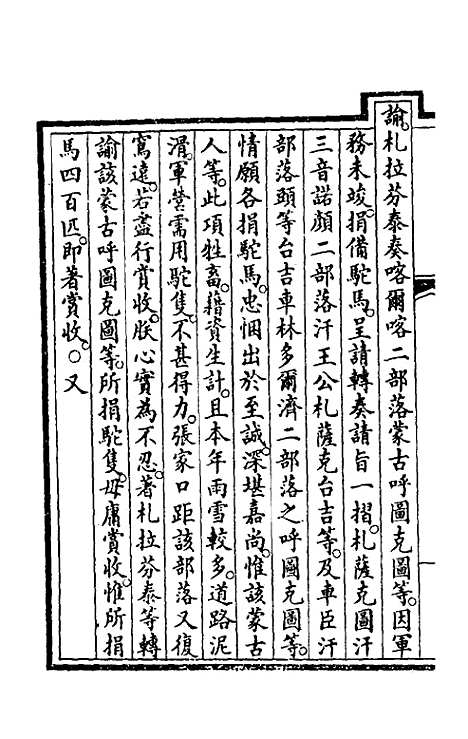 諭。札拉芬泰奏喀爾喀二部落蒙古呼圖克圖等。因軍
務未竣。捐備駝馬。呈請轉奏請旨一摺。札薩克圖汗
三音諾顏二部落汗王公札薩克台吉等。及車臣汗
部落頭等台吉車林多爾濟二部落之呼圖克圖等。
情願各捐駝馬。忠悃出於至誠。深堪嘉尚。惟該蒙古
人等。此項牲畜。藉資生計。且本年雨雪較多。道路泥
滑。軍營需用駝隻。不甚得力。張家口距該部落又復
窵遠。若盡行賞收。朕心實為不忍。著札拉芬泰等轉
諭該蒙古呼圖克圖等。所捐駝隻。毋庸賞收。惟所捐
馬四百匹。即著賞收。○又